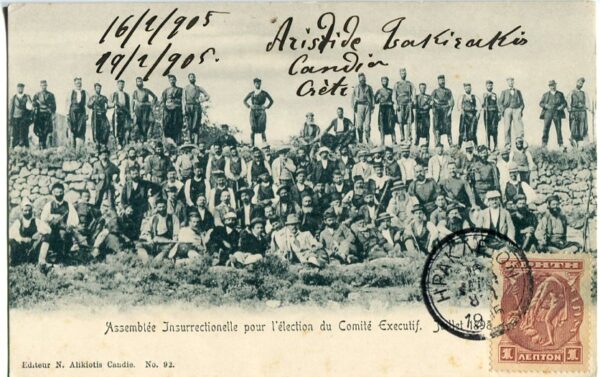 16/2/905 Aristide
29/2/905. Candia
Crète
Assemblée Insurrectionelle pour l'élection du Comité Executif. Juillet 1898
ΗΡΑΚΛΕΙΟΝ
ΚΡΗΤΗ
1 1
ΛΕΠΤΟΝ
Editeur N. Alikiotis Candie. No. 92.